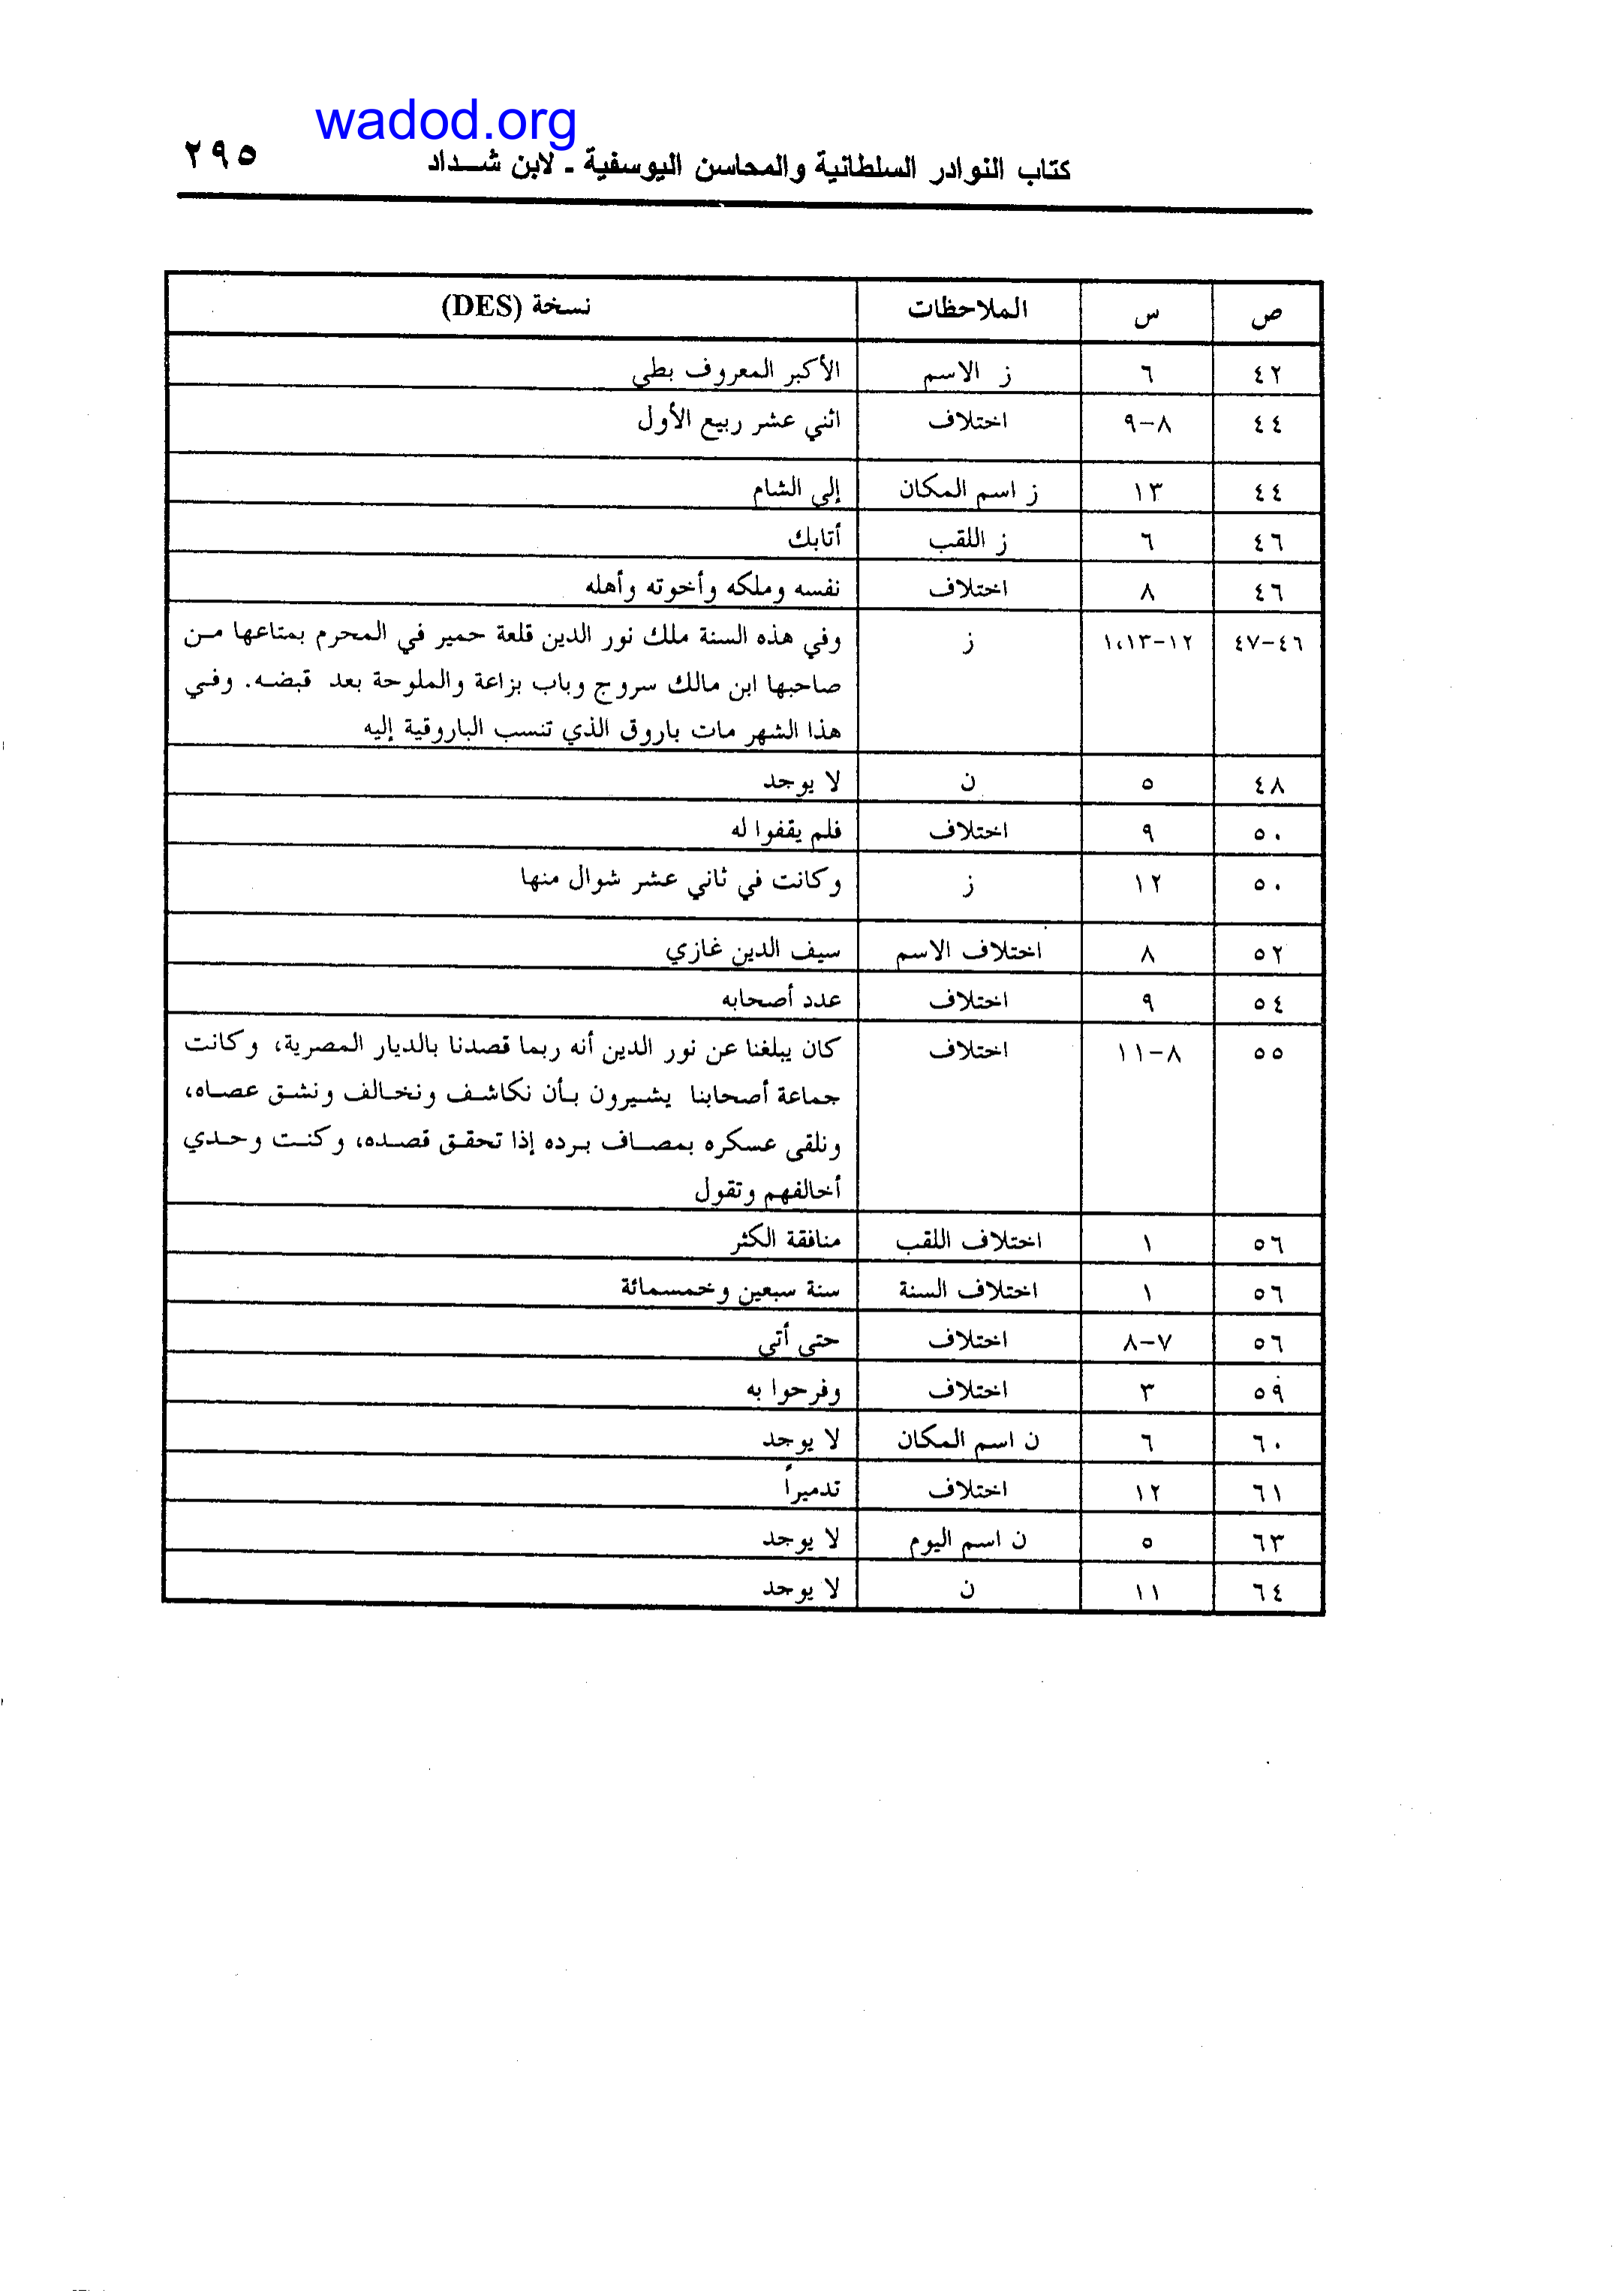 wadod.org
كتاب النوادر السلطانية والمحاسن اليوسفية ـ لابن شـــداد ٢٩٥
ص س الملاحظات نسخة (DES)
٤٢ ٦ ز الاسم الأكبر المعروف بطي
٤٤ ٨-٩ اختلاف اثني عشر ربيع الأول
٤٤ ١٣ ز اسم المكان إلى الشام
٤٦ ٦ ز اللقب أتابك
٤٦ ٨ اختلاف نفسه وملكه وأخوته وأهله
٤٦-٤٧ ١٢-١،١٣ ز وفي هذه السنة ملك نور الدين قلعة حمير في المحرم بمتاعها من
صاحبها ابن مالك سروج وباب بزاعة والملوحة بعد قبضه. وفي
هذا الشهر مات باروق الذي تنسب الباروقية إليه
٤٨ ٥ ن لا يوجد
٥٠ ٩ اختلاف فلم يقفوا له
٥٠ ١٢ ز وكانت في ثاني عشر شوال منها
٥٢ ٨ اختلاف الاسم سيف الدين غازي
٥٤ ٩ اختلاف عدد أصحابه
٥٥ ٨-١١ اختلاف كان يبلغنا عن نور الدين أنه ربما قصدنا بالديار المصرية، وكانت
جماعة أصحابنا يشيرون بأن نكاشف ونخالف ونشق عصاه،
ونلقى عسكره بمصاف برده إذا تحقق قصده، وكنت وحدي
أخالفهم وتقول
٥٦ ١ اختلاف اللقب منافقة الكثر
٥٦ ١ اختلاف السنة سنة سبعين وخمسمائة
٥٦ ٧-٨ اختلاف حتى أتى
٥٩ ٣ اختلاف وفرحوا به
٦٠ ٦ ن اسم المكان لا يوجد
٦١ ١٢ اختلاف تدميراً
٦٣ ٥ ن اسم اليوم لا يوجد
٦٤ ١١ ن لا يوجد